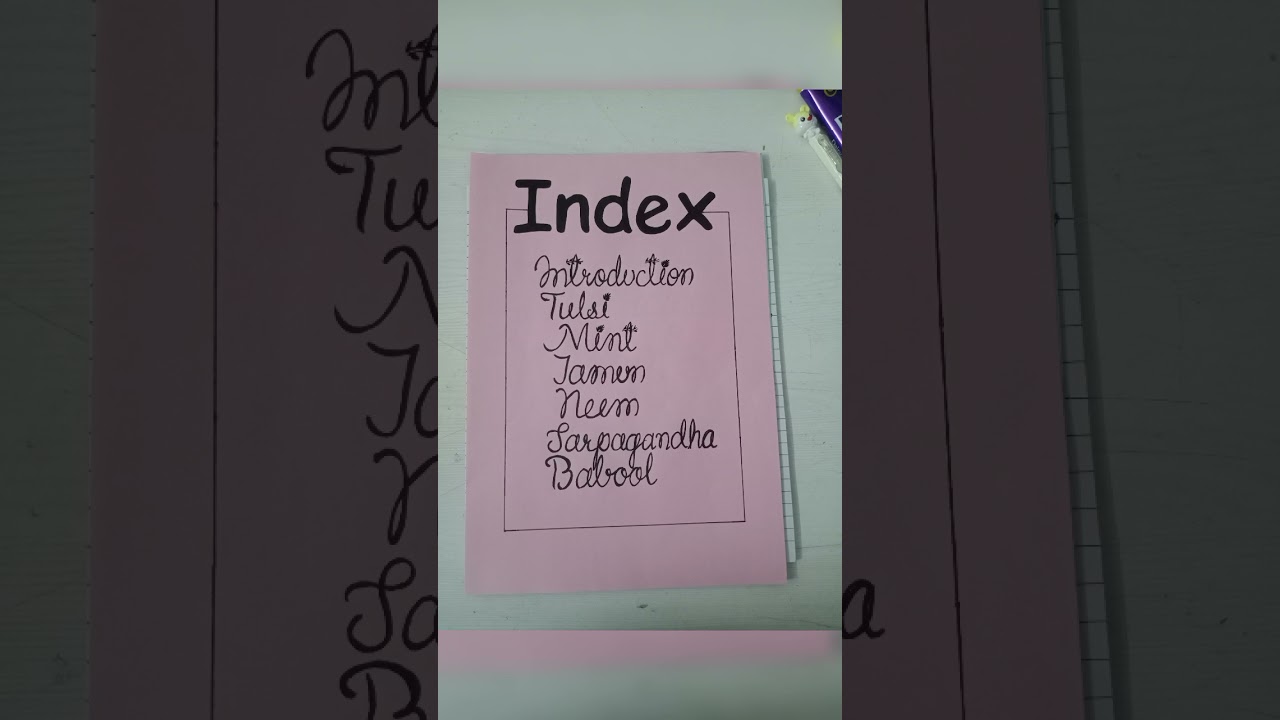 Index
Introduction
Tulsi
Mint
Jamun
Neem
Sarpagandha
Babool